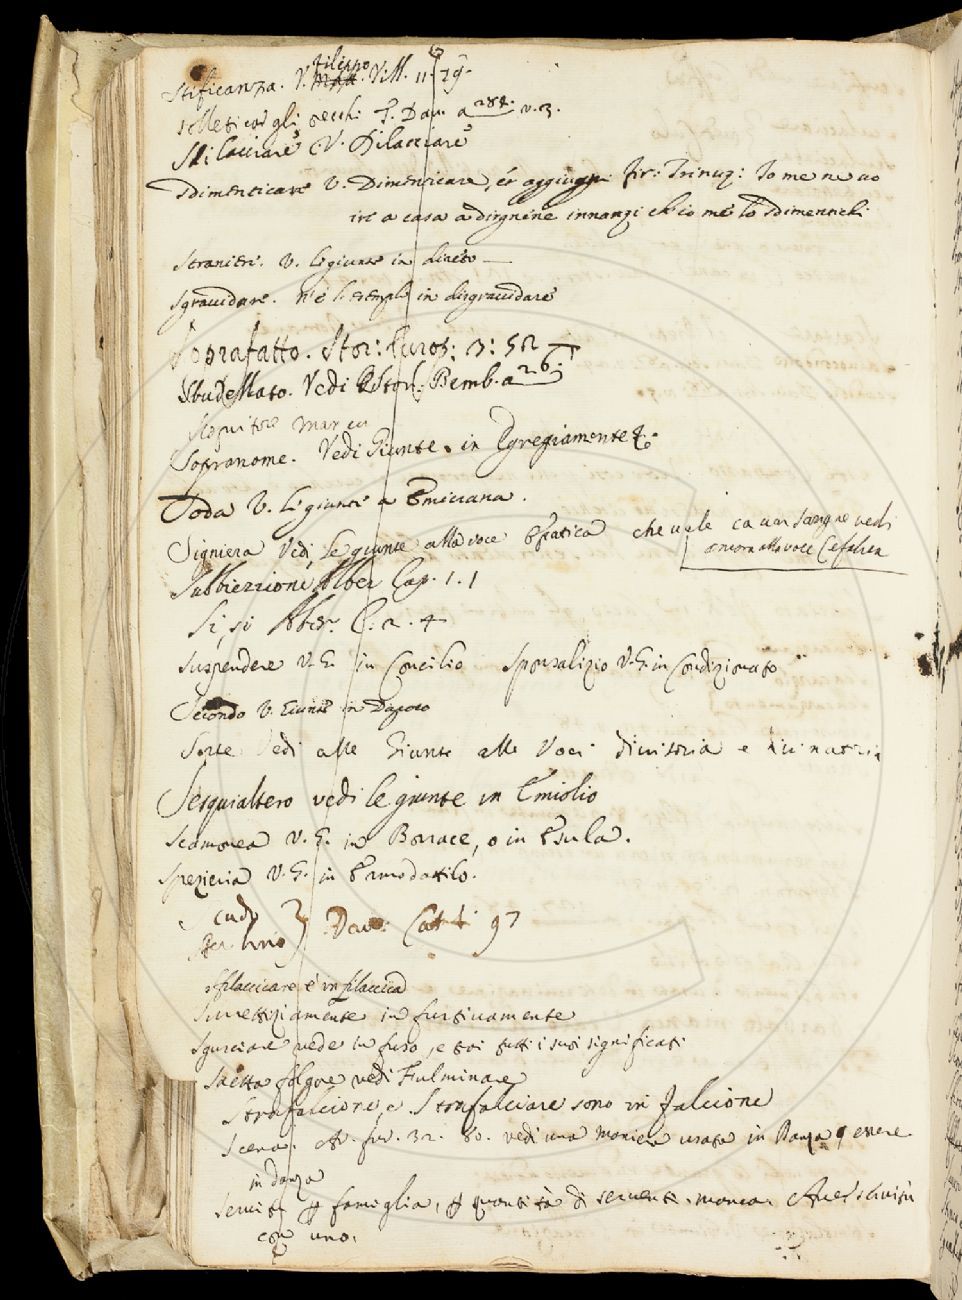 Stificanza. V. Filippo Vill. 11. 79.
solleticar gli orecchi T. Dav. a 284. v. 3.
Slilacciare V. Dilacciare
Sdimenticare V. Dimenticare, et aggiugni fir: Trinuz: Io me ne vo
ire a casa a dirgnene innanzi ch'io me lo sdimentichi
Stranieri. V. le giunte in diueto
Sgravidare. n'è l'esempio in disgravidare
Soprafatto. Stor: Europ: 3: 52
Sbudellato. Vedi Stor. Bemb. a 26
Sequitore manca
Sopranome. Vedi Giunte. in Egregiamente
Soda V. le giunte a Emicrana.
Signiera Vedi le giunte alla voce Epatica che vale cauar sangue vedi
ancora alla voce Cefalica
Subbiezzione Alber Cap. 1. 1
Si, si Alber. C. 2. 4
Suspendere V. G. in Concilio Sponsalizio V. G. in Condizionato
Secondo V. Giunte in Dapoco
Sorte Vedi alle Giunte alle Voci
Sesquialtero vedi le giunte in Emiolio
Scamonea V. G. in Borrace, o in Esula.
Spezieria V. G. in Ermodattilo.
Scudo
Dav: 97
sfilaccicare è in filaccica
Surrettiziamente in furtivamente
Sgusciare vede in fuso, e poi tutti i suoi significati
Saetta folgore vedi Fulminare
Strafalcione e Strafalciare sono in falcione
Scena. fur. 32. 80. vedi una maniera usata in Danza p essere
in danza
Servitù p famiglia, p quantità di serventi. manca. Aver servitù
con uno.